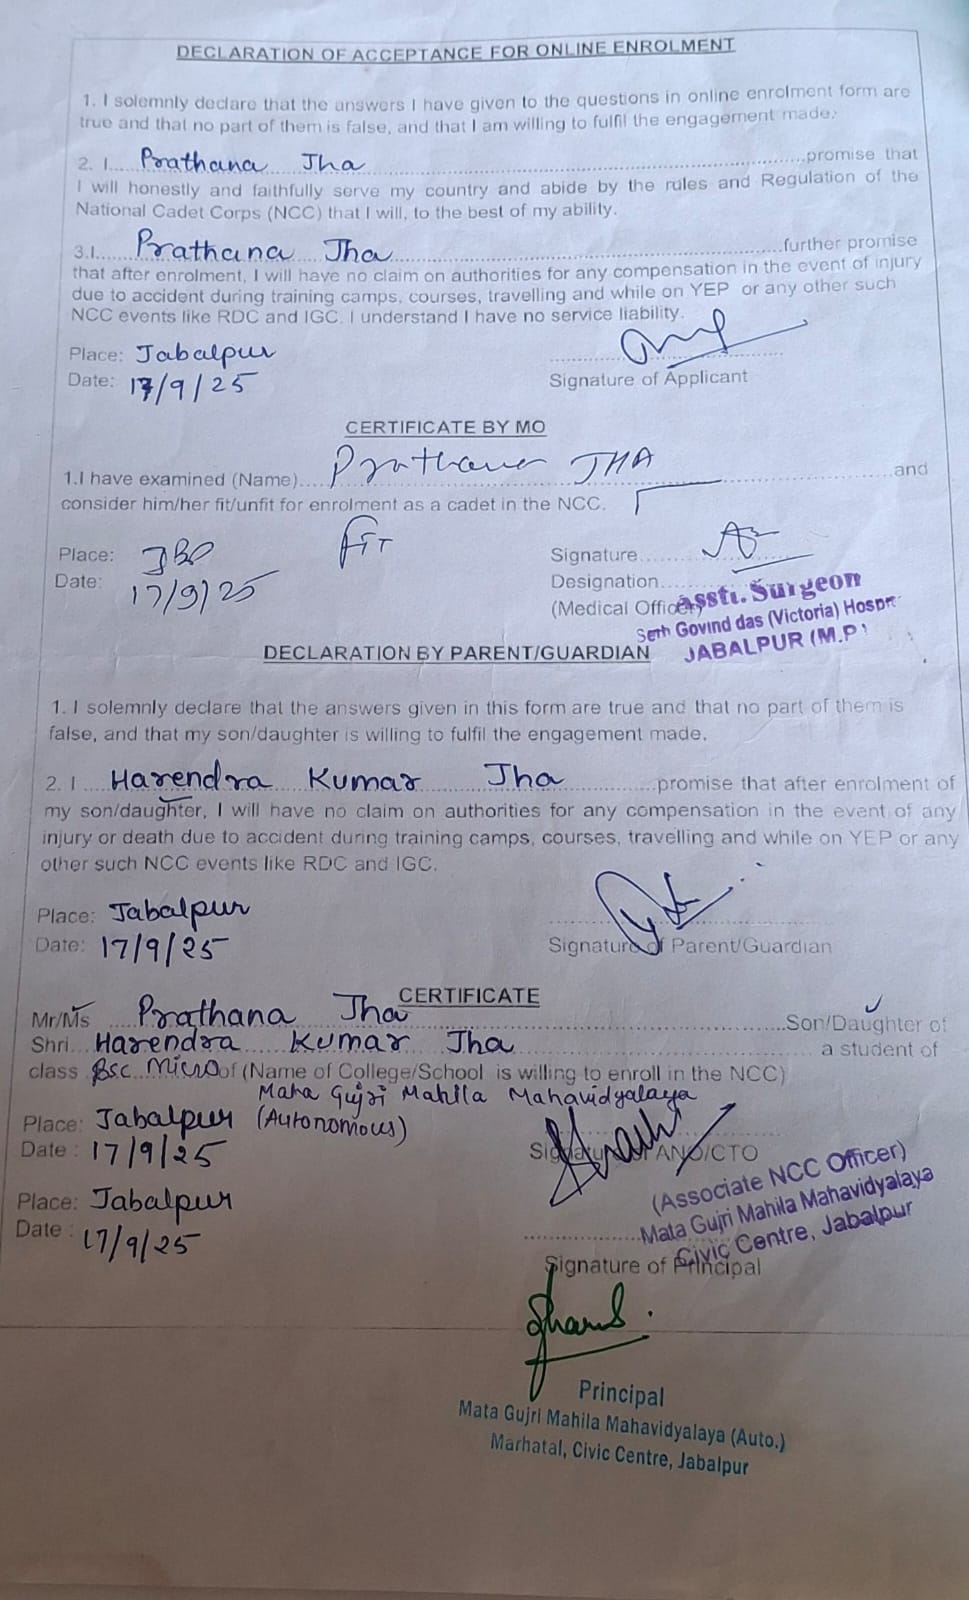 DECLARATION OF ACCEPTANCE FOR ONLINE ENROLMENT
1. I solemnly declare that the answers I have given to the questions in online enrolment form are
true and that no part of them is false, and that I am willing to fulfil the engagement made.
2. I.... Prathana Jha ....promise that
I will honestly and faithfully serve my country and abide by the rules and Regulation of the
National Cadet Corps (NCC) that I will, to the best of my ability.
3.I.... Prathana Jha ....further promise
that after enrolment, I will have no claim on authorities for any compensation in the event of injury
due to accident during training camps, courses, travelling and while on YEP or any other such
NCC events like RDC and IGC. I understand I have no service liability.
Place: Jabalpur
Date: 17/9/25
Signature of Applicant
CERTIFICATE BY MO
1.I have examined (Name).... Prathana JHA ....and
consider him/her fit/unfit for enrolment as a cadet in the NCC.
FIT
Place: JBP
Date: 17/9/25
Signature....
Designation....
(Medical Officer)
Asstt. Surgeon
Seth Govind das (Victoria) Hospi
JABALPUR (M.P)
DECLARATION BY PARENT/GUARDIAN
1. I solemnly declare that the answers given in this form are true and that no part of them is
false, and that my son/daughter is willing to fulfil the engagement made.
2. I.... Harendra Kumar Jha ....promise that after enrolment of
my son/daughter, I will have no claim on authorities for any compensation in the event of any
injury or death due to accident during training camps, courses, travelling and while on YEP or any
other such NCC events like RDC and IGC.
Place: Jabalpur
Date: 17/9/25
Signature of Parent/Guardian
CERTIFICATE
Mr/Ms .... Prathana Jha ....Son/Daughter of
Shri.. Harendra Kumar Jha .... a student of
class Bsc Micro of (Name of College/School is willing to enroll in the NCC)
Mata Gujri Mahila Mahavidyalaya
(Autonomous)
Place: Jabalpur
Date : 17/9/25
Signature of ANO/CTO
(Associate NCC Officer)
Mata Gujri Mahila Mahavidyalaya
Civic Centre, Jabalpur
Place: Jabalpur
Date : 17/9/25
Signature of Principal
Principal
Mata Gujri Mahila Mahavidyalaya (Auto.)
Marhatal, Civic Centre, Jabalpur